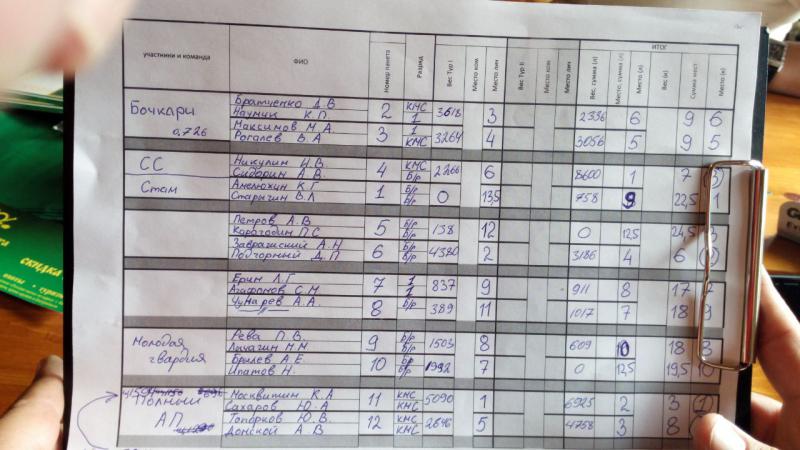 ИТОГ
участники и команда ФИО Номер пакета Разряд Вес Тур I Место ком Место лич Вес Тур II Место ком Место лич Вес, сумма (л) Место, сумма (л) Место (л) Вес (к) Сумма мест Место (к)
Братченко Д.В КМС
Бочкари Наумик К.П 2 1 3618 3 2336 6 9 6
0,726 Максимов М.А 1
Рогалев В.А 3 КМС 3264 4 3056 5 9 5
Никулин И.В. КМС
СС Сидорин А.В. 4 Б/р 2266 6 8600 1 7
Стам Амелюхин К.Г Б/р
Старыгин В.Л 1 Б/р 0 13,5 758 9 22,5
Петров А.В Б/р
Корогодин П.С 5 Б/р 138 12 0 12,5 24,5
Завражский А.Н Б/р
Подгорный Д.П 6 Б/р 4380 2 3186 4 6
Ерин Л.Г 1
Агафонов С.М 7 1 837 9 911 8 17
Чунарев А.А. 8 Б/р 389 11 1017 7 18 9
Молодая Рева П.В. Б/р
гвардия Лычагин М.М 9 Б/р 1503 8 609 10 18 8
Брилев А.Е Б/р
Ипатов Н. 10 Б/р 1992 7 0 12,5 19,5 10
Полный Москвитин К.А 11 КМС 5090 1 6925 2 3 1
Сахаров Ю.А КМС
АП Топорков Ю.В. 12 КМС 2646 5 4758 3 8
Донской А.В КМС
СКИДКА